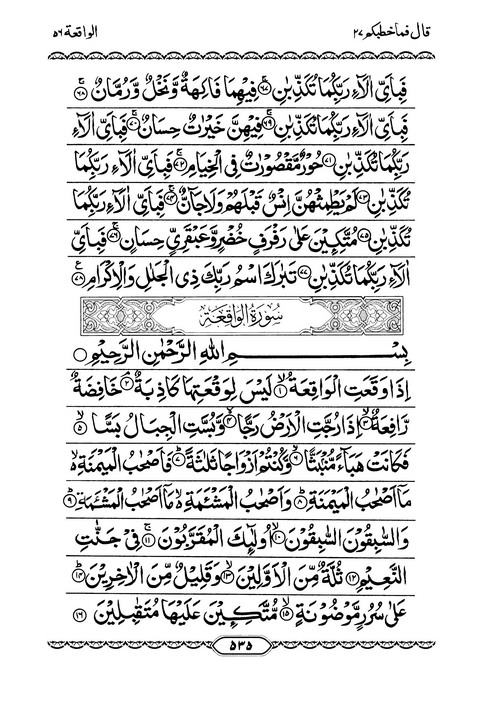 قال فما خطبكم ٢٧ الواقعة ٥٦
فَبِاَيِّ اٰلَآءِ رَبِّكُمَا تُكَذِّبٰنِ ﴿٦٧﴾ فِيْهِمَا فَاكِهَةٌ وَّنَخْلٌ وَّرُمَّانٌ ﴿٦٨﴾
فَبِاَيِّ اٰلَآءِ رَبِّكُمَا تُكَذِّبٰنِ ﴿٦٩﴾ فِيْهِنَّ خَيْرٰتٌ حِسَانٌ ﴿٧٠﴾ فَبِاَيِّ اٰلَآءِ
رَبِّكُمَا تُكَذِّبٰنِ ﴿٧١﴾ حُوْرٌ مَّقْصُوْرٰتٌ فِى الْخِيَامِ ﴿٧٢﴾ فَبِاَيِّ اٰلَآءِ رَبِّكُمَا
تُكَذِّبٰنِ ﴿٧٣﴾ لَمْ يَطْمِثْهُنَّ اِنْسٌ قَبْلَهُمْ وَلَا جَآنٌّ ﴿٧٤﴾ فَبِاَيِّ اٰلَآءِ رَبِّكُمَا
تُكَذِّبٰنِ ﴿٧٥﴾ مُتَّكِـِٕيْنَ عَلٰى رَفْرَفٍ خُضْرٍ وَّعَبْقَرِيٍّ حِسَانٍ ﴿٧٦﴾ فَبِاَيِّ
اٰلَآءِ رَبِّكُمَا تُكَذِّبٰنِ ﴿٧٧﴾ تَبٰرَكَ اسْمُ رَبِّكَ ذِى الْجَلٰلِ وَالْاِكْرَامِ ﴿٧٨﴾ ع
سُوْرَةُ الْوَاقِعَةِ
بِسْمِ اللهِ الرَّحْمٰنِ الرَّحِيْمِ
اِذَا وَقَعَتِ الْوَاقِعَةُ ﴿١﴾ لَيْسَ لِوَقْعَتِهَا كَاذِبَةٌ ﴿٢﴾ خَافِضَةٌ
رَّافِعَةٌ ﴿٣﴾ اِذَا رُجَّتِ الْاَرْضُ رَجًّا ﴿٤﴾ وَّبُسَّتِ الْجِبَالُ بَسًّا ﴿٥﴾
فَكَانَتْ هَبَآءً مُّنْۢبَثًّا ﴿٦﴾ وَّكُنْتُمْ اَزْوَاجًا ثَلٰثَةً ﴿٧﴾ فَاَصْحٰبُ الْمَيْمَنَةِ
مَآ اَصْحٰبُ الْمَيْمَنَةِ ﴿٨﴾ وَاَصْحٰبُ الْمَشْـَٔمَةِ مَآ اَصْحٰبُ الْمَشْـَٔمَةِ ﴿٩﴾
وَالسّٰبِقُوْنَ السّٰبِقُوْنَ ﴿١٠﴾ اُولٰٓئِكَ الْمُقَرَّبُوْنَ ﴿١١﴾ فِيْ جَنّٰتِ
النَّعِيْمِ ﴿١٢﴾ ثُلَّةٌ مِّنَ الْاَوَّلِيْنَ ﴿١٣﴾ وَقَلِيْلٌ مِّنَ الْاٰخِرِيْنَ ﴿١٤﴾
عَلٰى سُرُرٍ مَّوْضُوْنَةٍ ﴿١٥﴾ مُّتَّكِـِٕيْنَ عَلَيْهَا مُتَقٰبِلِيْنَ ﴿١٦﴾
٥٣٥